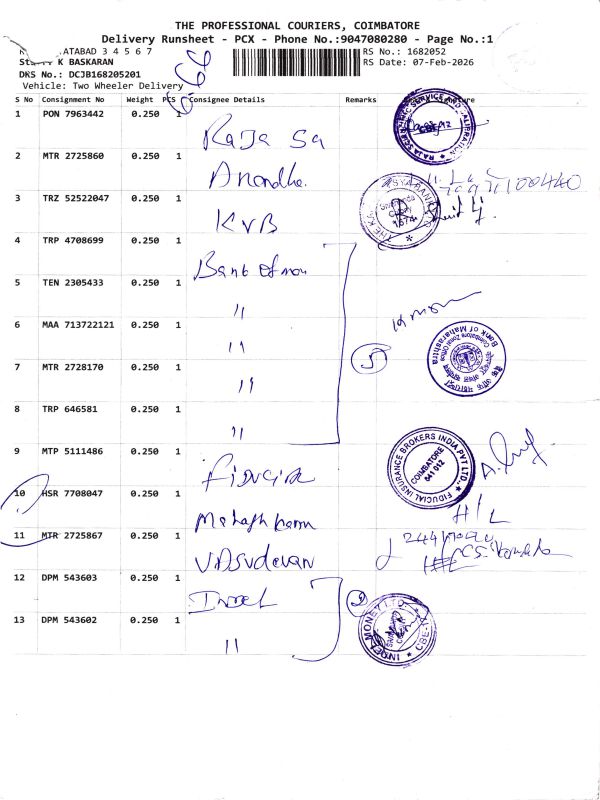 THE PROFESSIONAL COURIERS, COIMBATORE
Delivery Runsheet - PCX - Phone No.:9047080280 - Page No.:1
ATABAD 3 4 5 6 7
RS No.: 1682052
K BASKARAN
RS Date: 07-Feb-2026
DKS No.: DCJB168205201
Vehicle: Two Wheeler Delivery
S No Consignment No Weight PCS Consignee Details Remarks
1 PON 7963442 0.250 1 Raja Sa
2 MTR 2725860 0.250 1 Anandha.
3 TRZ 52522047 0.250 1 KVB
4 TRP 4708699 0.250 1 Bank of
5 TEN 2305433 0.250 1 "
6 MAA 713722121 0.250 1 "
7 MTR 2728170 0.250 1 "
5
Bank of Maharashtra
Coimbatore Zonal Office
8 TRP 646581 0.250 1 "
9 MTP 5111486 0.250 1
FIDUCIAL INSURANCE BROKERS INDIA PVT LTD.,
COIMBATORE
641 012
10 HSR 7708047 0.250 1
H/L
11 MTR 2725867 0.250 1 Vasudevan
12 DPM 543603 0.250 1 Indel
2
INDEL MONEY LTD
13 DPM 543602 0.250 1 "